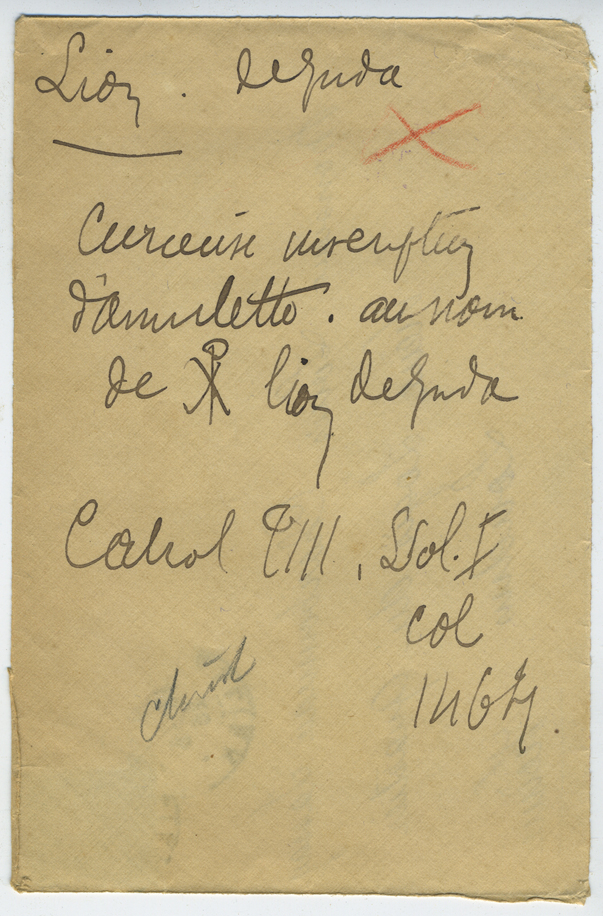 Lion . de Juda
Curieuse inscription
d'amulette . au nom
de ☧ lion de Juda
Cabrol VIII , Vol. I
col